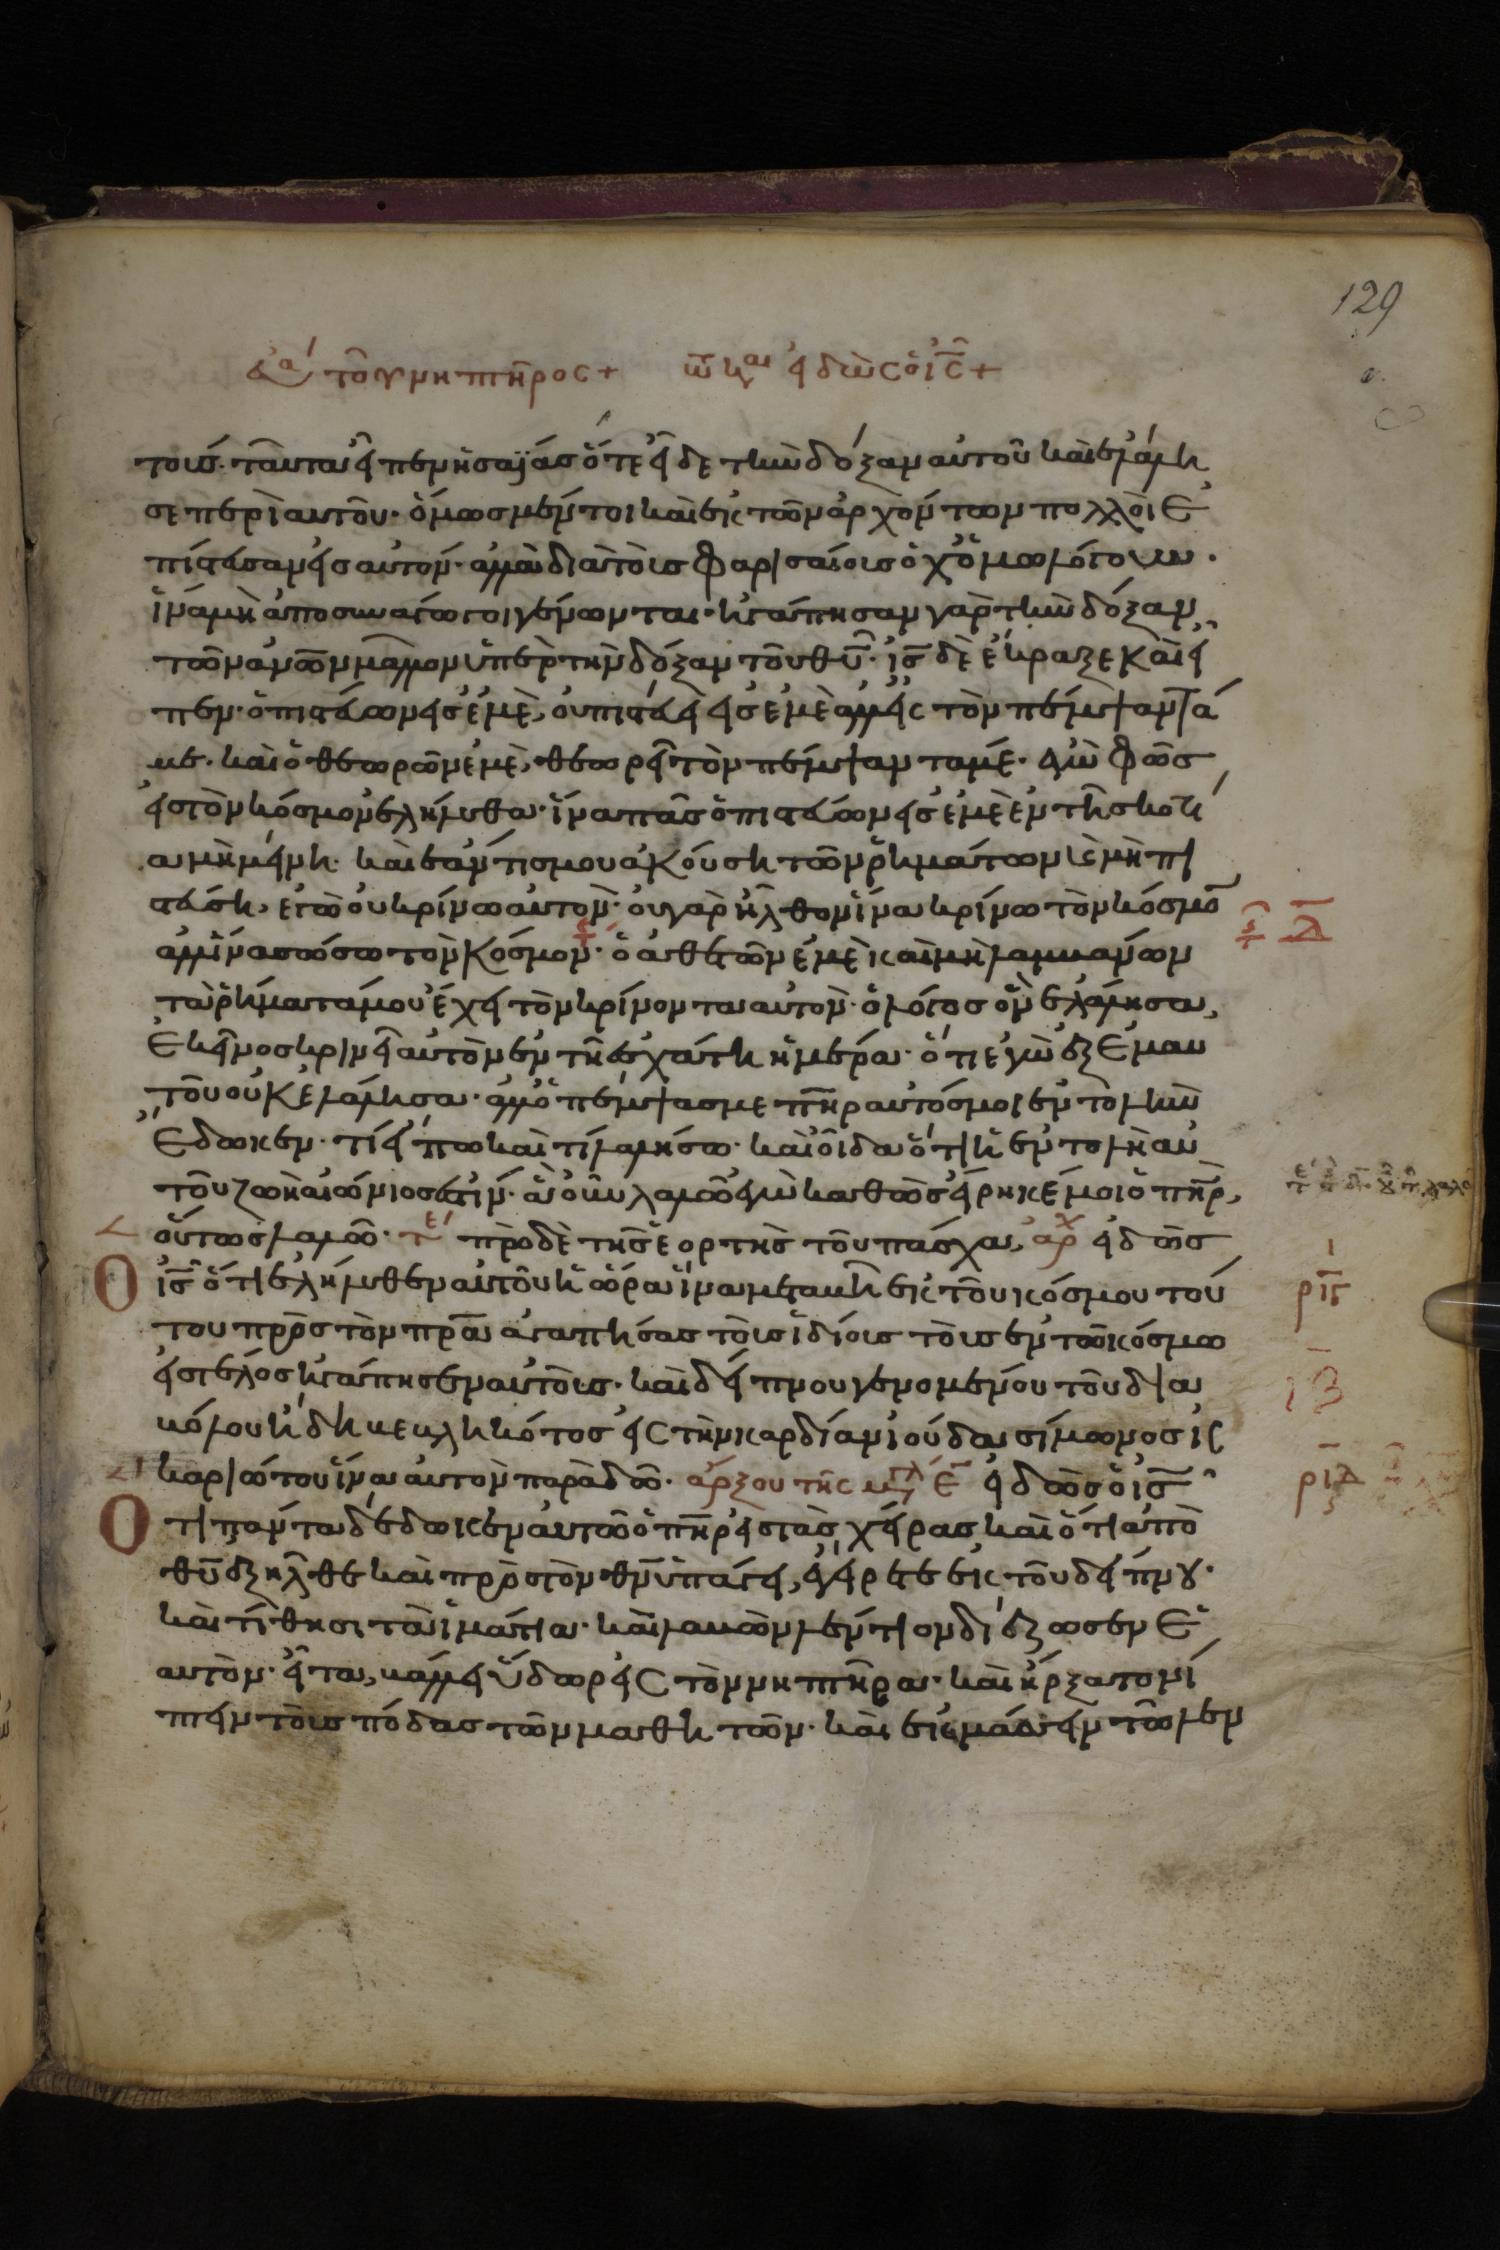 129
εὐα τοῦ νηπτῆρος + τῷ και εἰδὼς ὁ ις +
τους· ταῦτα εἶπεν ἡσαΐας ὅτε εἶδε τὴν δόξαν αὐτοῦ καὶ ἐλάλη
σε περὶ αὐτοῦ· ὅμως μέντοι καὶ ἐκ τῶν ἀρχόντων πολλοὶ ἐ
πίστευσαν εἰς αὐτόν· ἀλλὰ διὰ τοὺς φαρισαίους οὐχ ὁμολόγουν·
ἵνα μὴ ἀποσυνάγωγοι γένωνται· ἠγάπησαν γὰρ τὴν δόξαν
τῶν ανων μᾶλλον ὑπὲρ τὴν δόξαν τοῦ θυ· ις δὲ ἔκραζε καὶ εἶ
πεν· ὁ πιστεύων εἰς ἐμὲ, οὐ πιστεύει εἰς ἐμὲ ἀλλ' εἰς τὸν πέμψαντά
με· καὶ ὁ θεωρῶν ἐμὲ, θεωρεῖ τὸν πέμψαντά με· ἐγὼ φῶς
εἰς τὸν κόσμον ἐλήλυθα· ἵνα πᾶς ὁ πιστεύων εἰς ἐμὲ ἐν τῇ σκοτί
α μὴ μείνῃ· καὶ ἐάν τις μου ἀκούσῃ τῶν ῥημάτων καὶ μὴ πι
στεύσῃ, ἐγὼ οὐ κρίνω αὐτόν· οὐ γὰρ ἦλθον ἵνα κρίνω τὸν κόσμο
ἀλλ' ἵνα σώσω τὸν κόσμον· ὁ ἀθετῶν ἐμὲ καὶ μὴ λαμβάνων
τὰ ῥήματά μου ἔχει τὸν κρίνοντα αὐτόν· ὁ λόγος ὃν ἐλάλησα,
ἐκεῖνος κρινεῖ αὐτὸν ἐν τῇ ἐσχάτῃ ἡμέρα· ὅτι ἐγὼ ἐξ ἐμαυ
τοῦ οὐκ ἐλάλησα· ἀλλ' ὁ πέμψας με πηρ αὐτός μοι ἐντολὴν
ἔδωκεν· τί εἴπω καὶ τί λαλήσω· καὶ οἶδα ὅτι ἡ ἐντολὴ αὐ
τοῦ ζωὴ αἰώνιός ἐστιν· ἃ οὖν λαλῶ ἐγὼ καθὼς εἴρηκέ μοι ὁ πηρ,
οὕτως λαλῶ· τε πρὸ δὲ τῆς ἑορτῆς τοῦ πάσχα, ἀρχ εἰδὼς
Ο ις ὅτι ἐλήλυθεν αὐτοῦ ἡ ὥρα ἵνα μεταβῆ ἐκ τοῦ κόσμου τού
του πρὸς τὸν πρα ἀγαπήσας τοὺς ἰδίους τοὺς ἐν τῶ κόσμω
εἰς τέλος ἠγάπησεν αὐτούς· καὶ δείπνου γενομένου τοῦ δια
βόλου ἤδη βεβληκότος εἰς τὴν καρδίαν ἰούδα σίμωνος ἰσ
καριώτου ἵνα αὐτὸν παραδῶ· ἄρξου τῆς μγ ε εἰδὼς ὁ ις
Ο τι πάντα δέδωκεν αὐτῶ ὁ πηρ εἰς τὰς χεῖρας καὶ ὅτι ἀπὸ
θυ ἐξῆλθε καὶ πρὸς τὸν θν ὑπάγει, ἐγείρεται ἐκ τοῦ δείπνου·
καὶ τίθησι τὰ ἱμάτια· καὶ λαβὼν λέντιον διέζωσεν ἑ
αυτόν· εἶτα, βάλλει ὕδωρ εἰς τὸν νηπτῆρα· καὶ ἤρξατο νί
πτειν τοὺς πόδας τῶν μαθητῶν· καὶ ἐκμάσσειν τῶ λεν
ριγ
ριδ